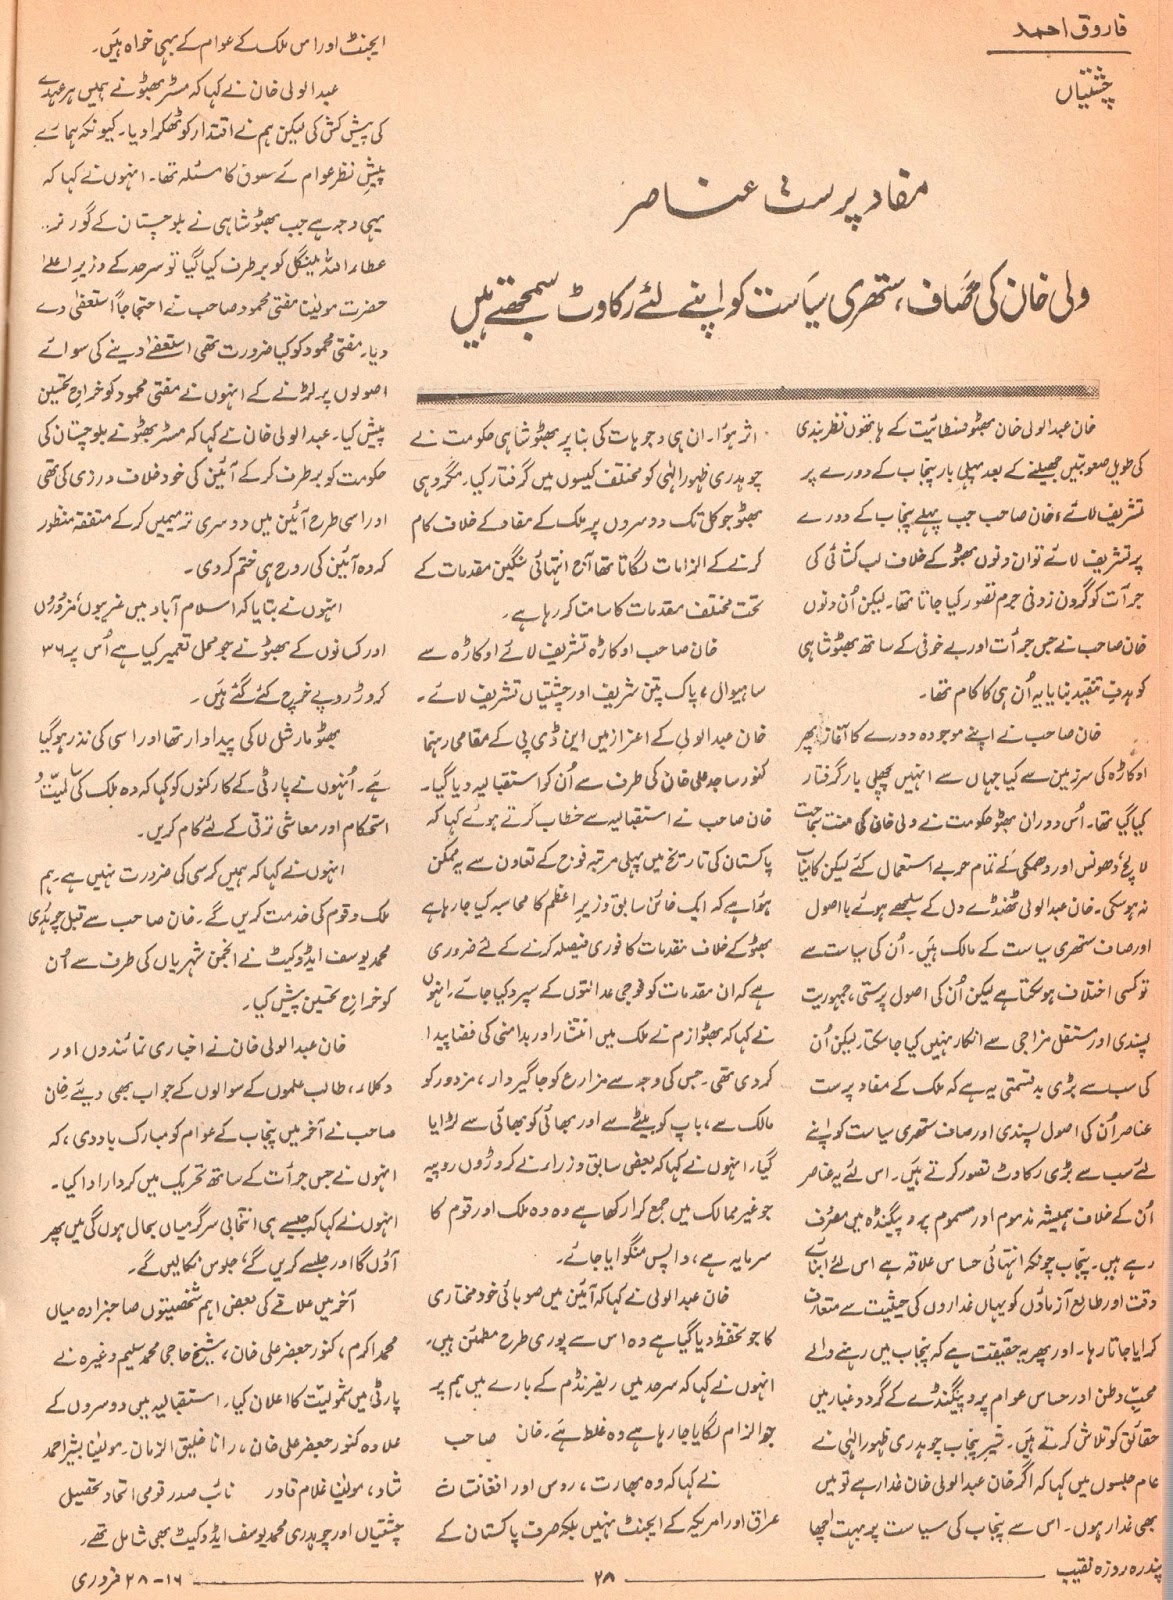 فاروق احمد
چشتیاں
مفاد پرست عناصر
ولی خان کی صاف، ستھری سیاست کو اپنے لئے رکاوٹ سمجھتے ہیں
خان عبدالولی خان بھٹو فسطائیت کے ہاتھوں نظر بندی
کی طویل صعوبتیں جھیلنے کے بعد پہلی بار پنجاب کے دورے پر
تشریف لائے، خان صاحب جب پہلے پنجاب کے دورے
پر تشریف لائے تو ان دنوں بھٹو کے خلاف لب کشائی کی
جرأت کو گردن زدنی جرم تصور کیا جاتا تھا۔ لیکن اُن دنوں
خان صاحب نے جس جرأت اور بے خوفی کے ساتھ بھٹو شاہی
کو ہدفِ تنقید بنایا یہ اُن ہی کا کام تھا۔
خان صاحب نے اپنے موجودہ دورے کا آغاز پھر
اوکاڑہ کی سرزمین سے کیا جہاں سے انہیں پچھلی بار گرفتار
کیا گیا تھا۔ اُس دوران بھٹو حکومت نے ولی خان کی منت سماجت
لالچ، دھونس اور دھمکی کے تمام حربے استعمال کئے لیکن کامیاب
نہ ہو سکی۔ خان عبدالولی ٹھنڈے دل کے سلجھے ہوئے بااصول
اور صاف ستھری سیاست کے مالک ہیں۔ اُن کی سیاست سے
تو کسی اختلاف ہو سکتا ہے لیکن اُن کی اصول پرستی، جمہوریت
پسندی اور مستقل مزاجی سے انکار نہیں کیا جا سکتا لیکن اُن
کی سب سے بڑی بدقسمتی یہ ہے کہ ملک کے مفاد پرست
عناصر اُن کی اصول پسندی اور صاف ستھری سیاست کو اپنے
لئے سب سے بڑی رکاوٹ تصور کرتے ہیں۔ اس لئے یہ عناصر
اُن کے خلاف ہمیشہ مذموم اور مسموم پروپیگنڈہ میں مصروف
رہے ہیں۔ پنجاب چونکہ انتہائی حساس علاقہ ہے اس لئے ابنائے
وقت اور طالع آزماؤں کو یہاں غداروں کی حیثیت سے متعارف
کرایا جاتا رہا۔ اور پھر یہ حقیقت ہے کہ پنجاب میں رہنے والے
محبِ وطن اور حساس عوام پروپیگنڈے کے گرد و غبار میں
حقائق کو تلاش کرتے ہیں۔ شیرِ پنجاب چوہدری ظہور الٰہی نے
عام جلسوں میں کہا کہ اگر خان عبدالولی خان غدار ہے تو میں
بھی غدار ہوں۔ اس سے پنجاب کی سیاست پر بہت اچھا
اثر ہوا۔ ان ہی وجوہات کی بنا پر بھٹو شاہی حکومت نے
چوہدری ظہور الٰہی کو مختلف کیسوں میں گرفتار کیا۔ مگر وہی
بھٹو جو کل تک دوسروں پر ملک کے مفاد کے خلاف کام
کرنے کے الزامات لگاتا تھا آج انتہائی سنگین مقدمات کے
تحت مختلف مقدمات کا سامنا کر رہا ہے۔
خان صاحب اوکاڑہ تشریف لائے اوکاڑہ سے
ساہیوال، پاک پتن شریف اور چشتیاں تشریف لائے۔
خان عبدالولی کے اعزاز میں این ڈی پی کے مقامی رہنما
کنور ساجد علی خان کی طرف سے اُن کو استقبالیہ دیا گیا۔
خان صاحب نے استقبالیہ سے خطاب کرتے ہوئے کہا کہ
پاکستان کی تاریخ میں پہلی مرتبہ فوج کے تعاون سے یہ ممکن
ہوا ہے کہ ایک خائن سابق وزیر اعظم کا محاسبہ کیا جا رہا ہے
بھٹو کے خلاف مقدمات کا فوری فیصلہ کرنے کے لئے ضروری
ہے کہ ان مقدمات کو فوجی عدالتوں کے سپرد کیا جائے۔ انہوں
نے کہا کہ بھٹو ازم نے ملک میں انتشار اور بدامنی کی فضا پیدا
کر دی تھی۔ جس کی وجہ سے مزارع کو جاگیردار، مزدور کو
مالک سے، باپ کو بیٹے سے اور بھائی کو بھائی سے لڑایا
گیا۔ انہوں نے کہا کہ بعض سابق وزراء نے کروڑوں روپیہ
جو غیر ممالک میں جمع کرا رکھا ہے وہ ملک اور قوم کا
سرمایہ ہے، واپس منگوایا جائے۔
خان عبدالولی نے کہا کہ آئین میں صوبائی خودمختاری
کا جو تحفظ دیا گیا ہے وہ اس سے پوری طرح مطمئن ہیں۔
انہوں نے کہا کہ سرحد میں ریفرنڈم کے بارے میں ہم پر
جو الزام لگایا جا رہا ہے وہ غلط ہے۔ خان صاحب
نے کہا کہ وہ بھارت، روس اور افغانستان
عراق اور امریکہ کے ایجنٹ نہیں بلکہ صرف پاکستان کے
ایجنٹ اور اس ملک کے عوام کے بہی خواہ ہیں۔
عبدالولی خان نے کہا کہ مسٹر بھٹو نے ہمیں ہر عہدے
کی پیش کش کی لیکن ہم نے اقتدار کو ٹھکرا دیا۔ کیونکہ ہمارے
پیشِ نظر عوام کے حقوق کا مسئلہ تھا۔ انہوں نے کہا کہ
یہی وجہ ہے جب بھٹو شاہی نے بلوچستان کے گورنر
عطاء اللہ مینگل کو برطرف کیا گیا تو سرحد کے وزیر اعلےٰ
حضرت مولینا مفتی محمود صاحب نے احتجاجاً استعفیٰ دے
دیا۔ مفتی محمود کو کیا ضرورت تھی استعفےٰ دینے کی سوائے
اصولوں پر لڑنے کے انہوں نے مفتی محمود کو خراج تحسین
پیش کیا۔ عبدالولی خان نے کہا کہ مسٹر بھٹو نے بلوچستان کی
حکومت کو برطرف کر کے آئین کی خود خلاف ورزی کی تھی
اور اسی طرح آئین میں دوسری ترمیمیں کر کے متفقہ منظور
کردہ آئین کی روح ہی ختم کر دی۔
انہوں نے بتایا کہ اسلام آباد میں غریبوں، مزدوروں
اور کسانوں کے بھٹو نے جو محل تعمیر کیا ہے اُس پر ۳۶
کروڑ روپے خرچ کئے گئے ہیں۔
بھٹو مارشل لا کی پیداوار تھا اور اسی کی نذر ہو گیا
ہے۔ اُنہوں نے پارٹی کے کارکنوں کو کہا کہ وہ ملک کی سالمیت و
استحکام اور معاشی ترقی کے لئے کام کریں۔
انہوں نے کہا کہ ہمیں کرسی کی ضرورت نہیں ہے۔ ہم
ملک و قوم کی خدمت کریں گے۔ خان صاحب سے قبل چوہدری
محمد یوسف ایڈووکیٹ نے انجمن شہریاں کی طرف سے اُن
کو خراجِ تحسین پیش کیا۔
خان عبدالولی خان نے اخباری نمائندوں اور
وکلاء، طالب علموں کے سوالوں کے جواب بھی دیئے خان
صاحب نے آخر میں پنجاب کے عوام کو مبارک باد دی، کہ
انہوں نے جس جرأت کے ساتھ تحریک میں کردار ادا کیا۔
انہوں نے کہا کہ جیسے ہی انتخابی سرگرمیاں بحال ہوں گی میں پھر
آؤں گا اور جلسے کریں گے، جلوس نکالیں گے۔
آخر میں علاقے کی بعض اہم شخصیتوں صاحبزادہ میاں
محمد اکرم، کنور جعفر علی خان، شیخ حاجی محمد سلیم وغیرہ نے
پارٹی میں شمولیت کا اعلان کیا۔ استقبالیہ میں دوسروں کے
علاوہ کنور جعفر علی خان، رانا خلیق الزمان۔ مولینا بشیر احمد
شاد، مولینا غلام قادر نائب صدر قومی اتحاد تحصیل
چشتیاں اور چوہدری محمد یوسف ایڈووکیٹ بھی شامل تھے۔
پندرہ روزہ نقیب
۲۸
۱۶-۲۸ فروری